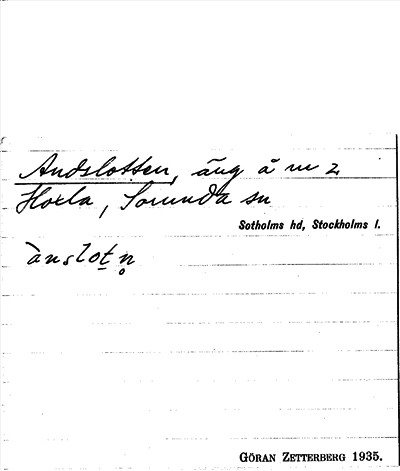 Andslotten, äng å m 2
Hoxla, Sorunda sn
Sotholms hd, Stockholms l.
ànslot̠n̥
GÖRAN ZETTERBERG 1935.